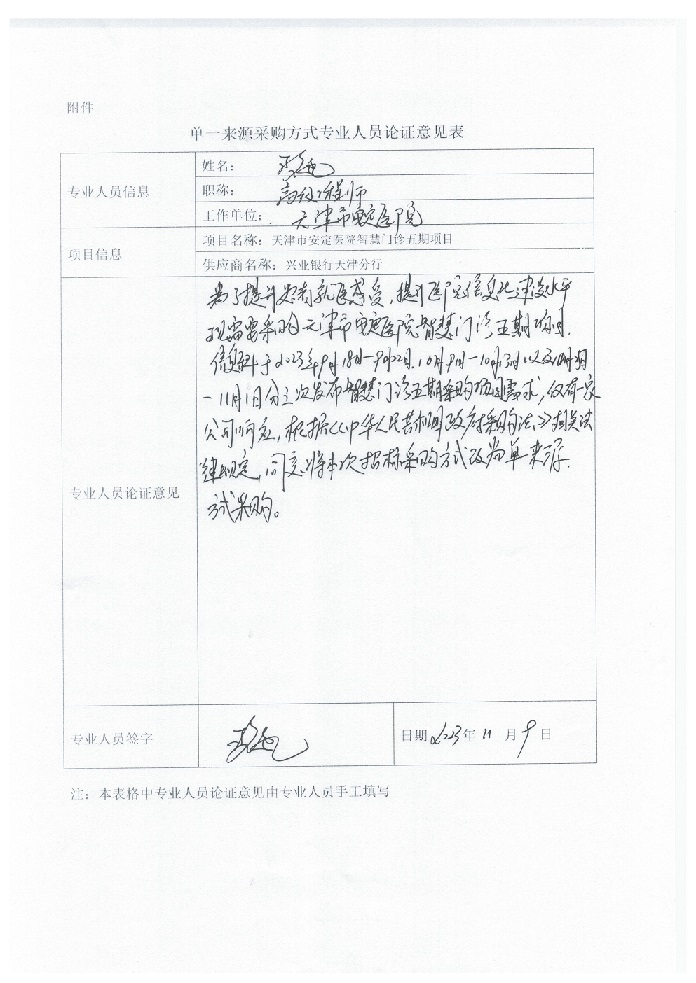 附件
单一来源采购方式专业人员论证意见表
专业人员信息
姓名：
职称：高级工程师
工作单位：天津市安定医院
项目信息
项目名称：天津市安定医院智慧门诊五期项目
供应商名称：兴业银行天津分行
专业人员论证意见
为了提升患者就医感受，提升医院信息化建设水平
现需要采购天津市安定医院智慧门诊五期项目.
信息科于2023年9月18日-9月22日.10月9日-10月
-11月1日分三次发布智慧门诊五期采购项目需求，仅有一家
公司响应，根据《中华人民共和国政府采购法》相关法
律规定，同意将本次招标采购方式改为单一来源
方式采购。
专业人员签字
日期 2023年 11 月 9 日
注：本表格中专业人员论证意见由专业人员手工填写